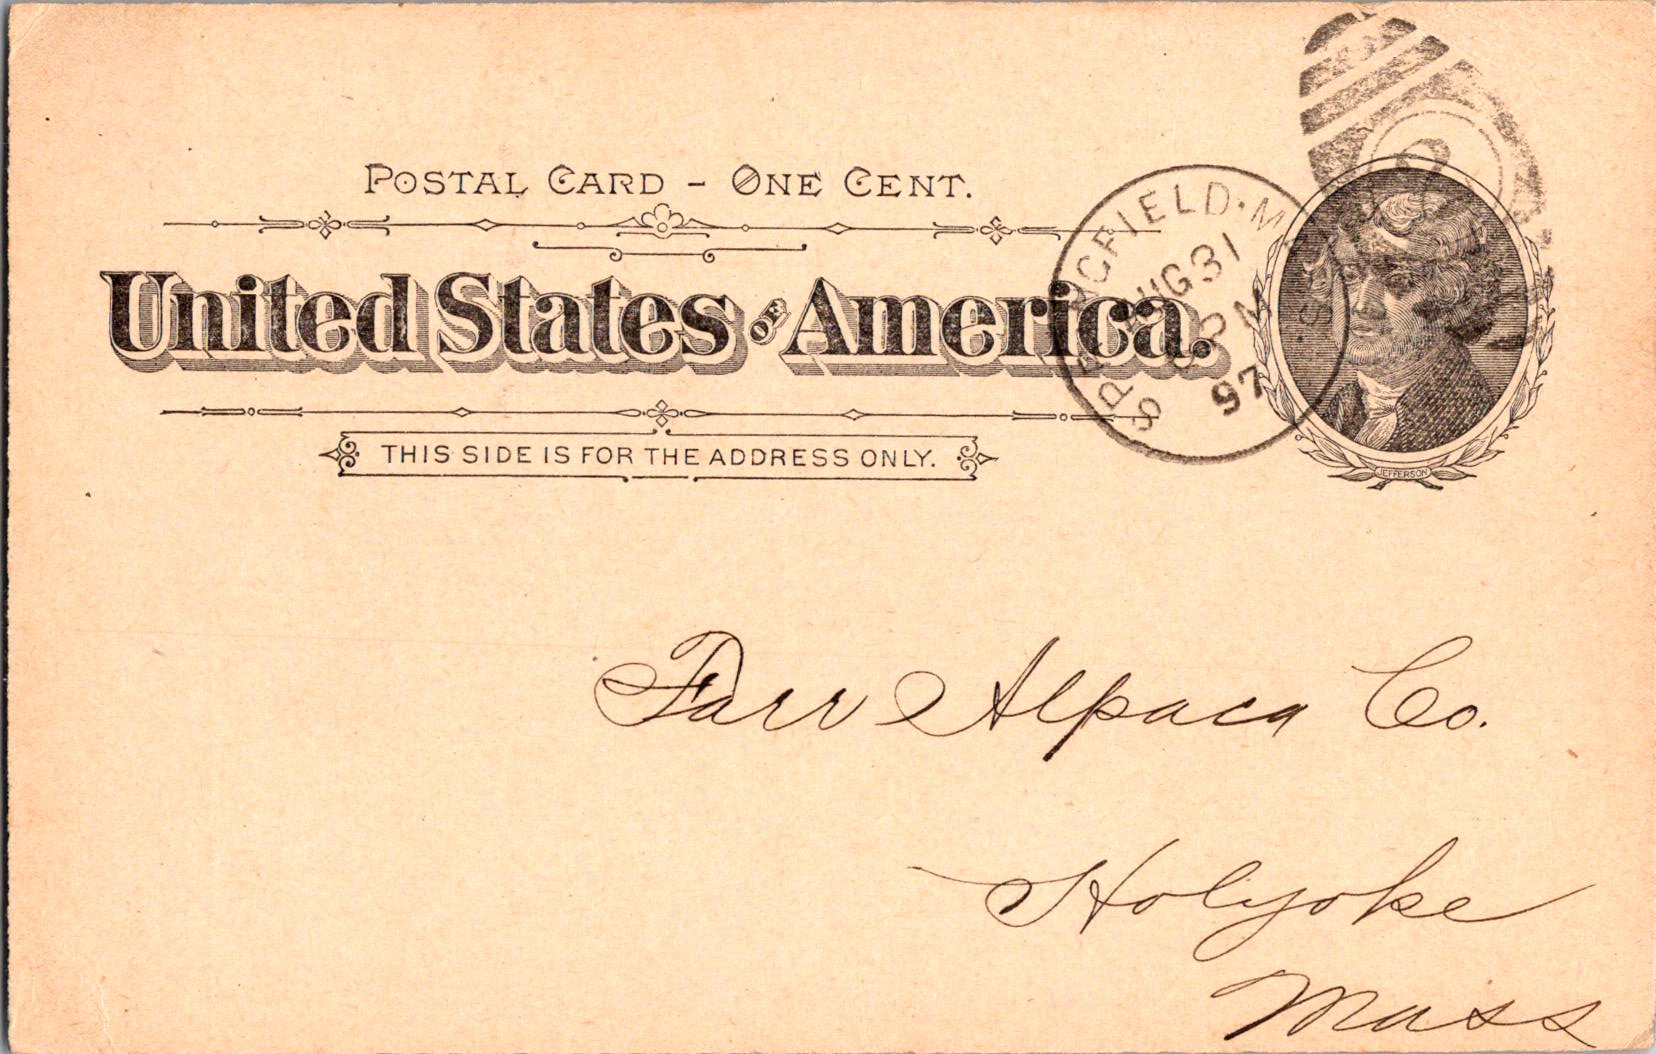 POSTAL CARD - ONE CENT.
United States OF America.
THIS SIDE IS FOR THE ADDRESS ONLY.
SPRINGFIELD. MASS.
AUG 31
97
JEFFERSON
Farr Alpaca Co.
Holyoke
Mass